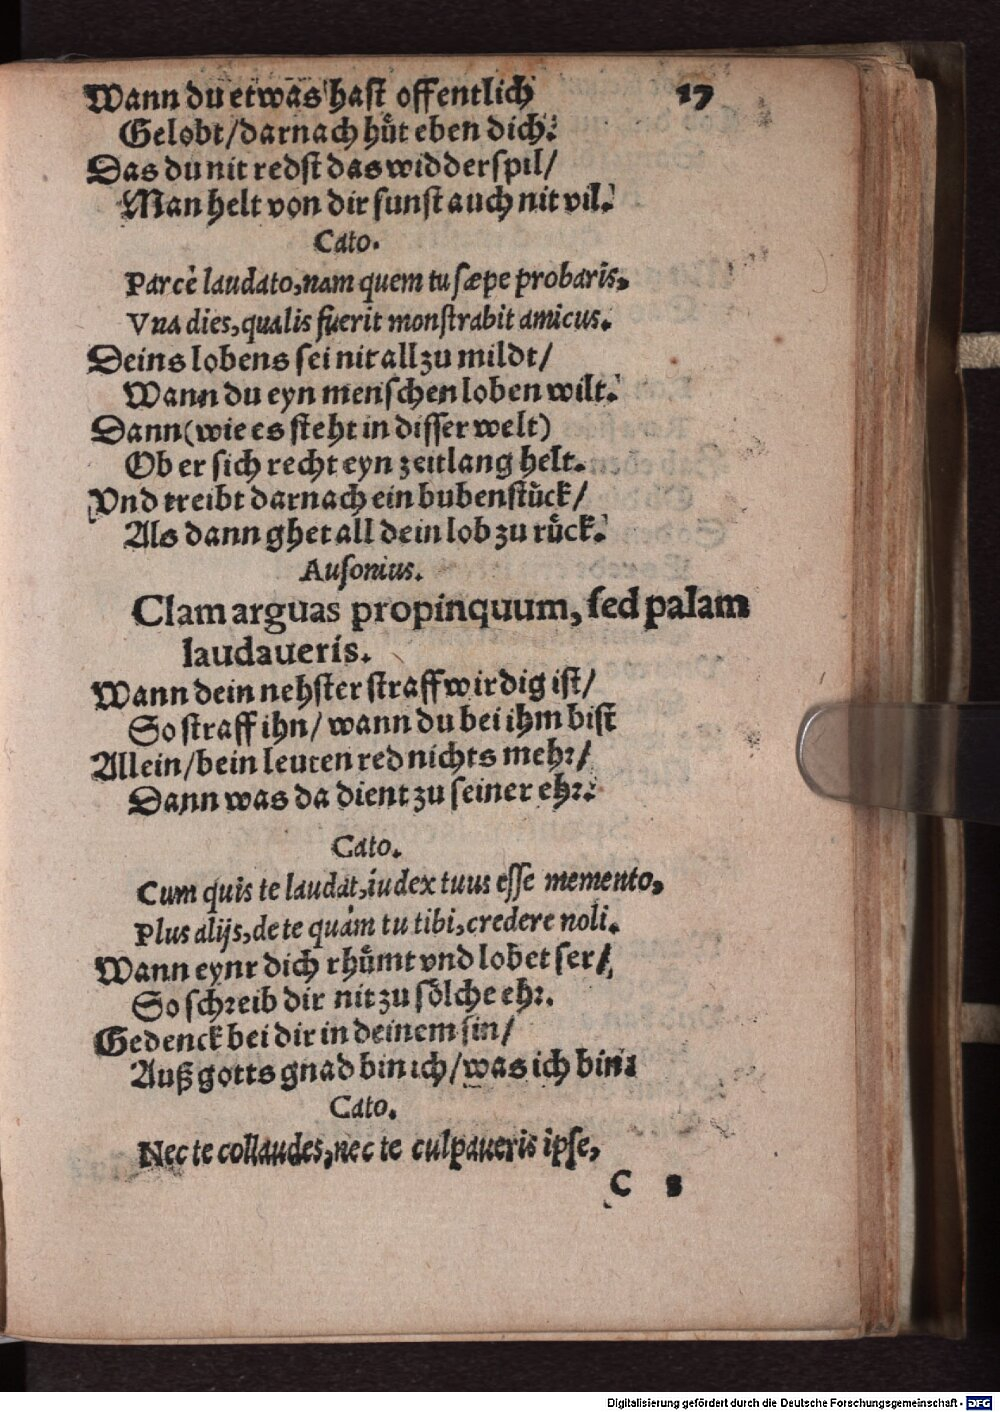 Wann du etwas hast offentlich 17
Gelobt/darnach hüt eben dich:
Das du nit redst das widderspil/
Man helt von dir sunst auch nit vil.
Cato.
Parcè laudato, nam quem tu sæpe probaris,
Vna dies, qualis fuerit monstrabit amicus.
Deins lobens sei nit all zu mildt/
Wann du eyn menschen loben wilt.
Dann (wie es steht in disser welt)
Ob er sich recht eyn zeitlang helt.
Vnd treibt darnach ein bubenstück/
Als dann ghet all dein lob zu rück.
Ausonius.
Clam arguas propinquum, sed palam
laudaueris.
Wann dein nehster straffwirdig ist/
So straff ihn/ wann du bei ihm bist
Allein/bein leuten red nichts mehr/
Dann was da dient zu seiner ehr.
Cato.
Cum quis te laudat, iudex tuus esse memento,
Plus alijs, de te quàm tu tibi, credere noli.
Wann eynr dich rhümt vnd lobet ser/
So schreib dir nit zu sölche ehr.
Gedenck bei dir in deinem sin/
Auß gotts gnad bin ich/was ich bin:
Cato.
Nec te collaudes, nec te culpaueris ipse,
C 8
Digitalisierung gefördert durch die Deutsche Forschungsgemeinschaft - DFG